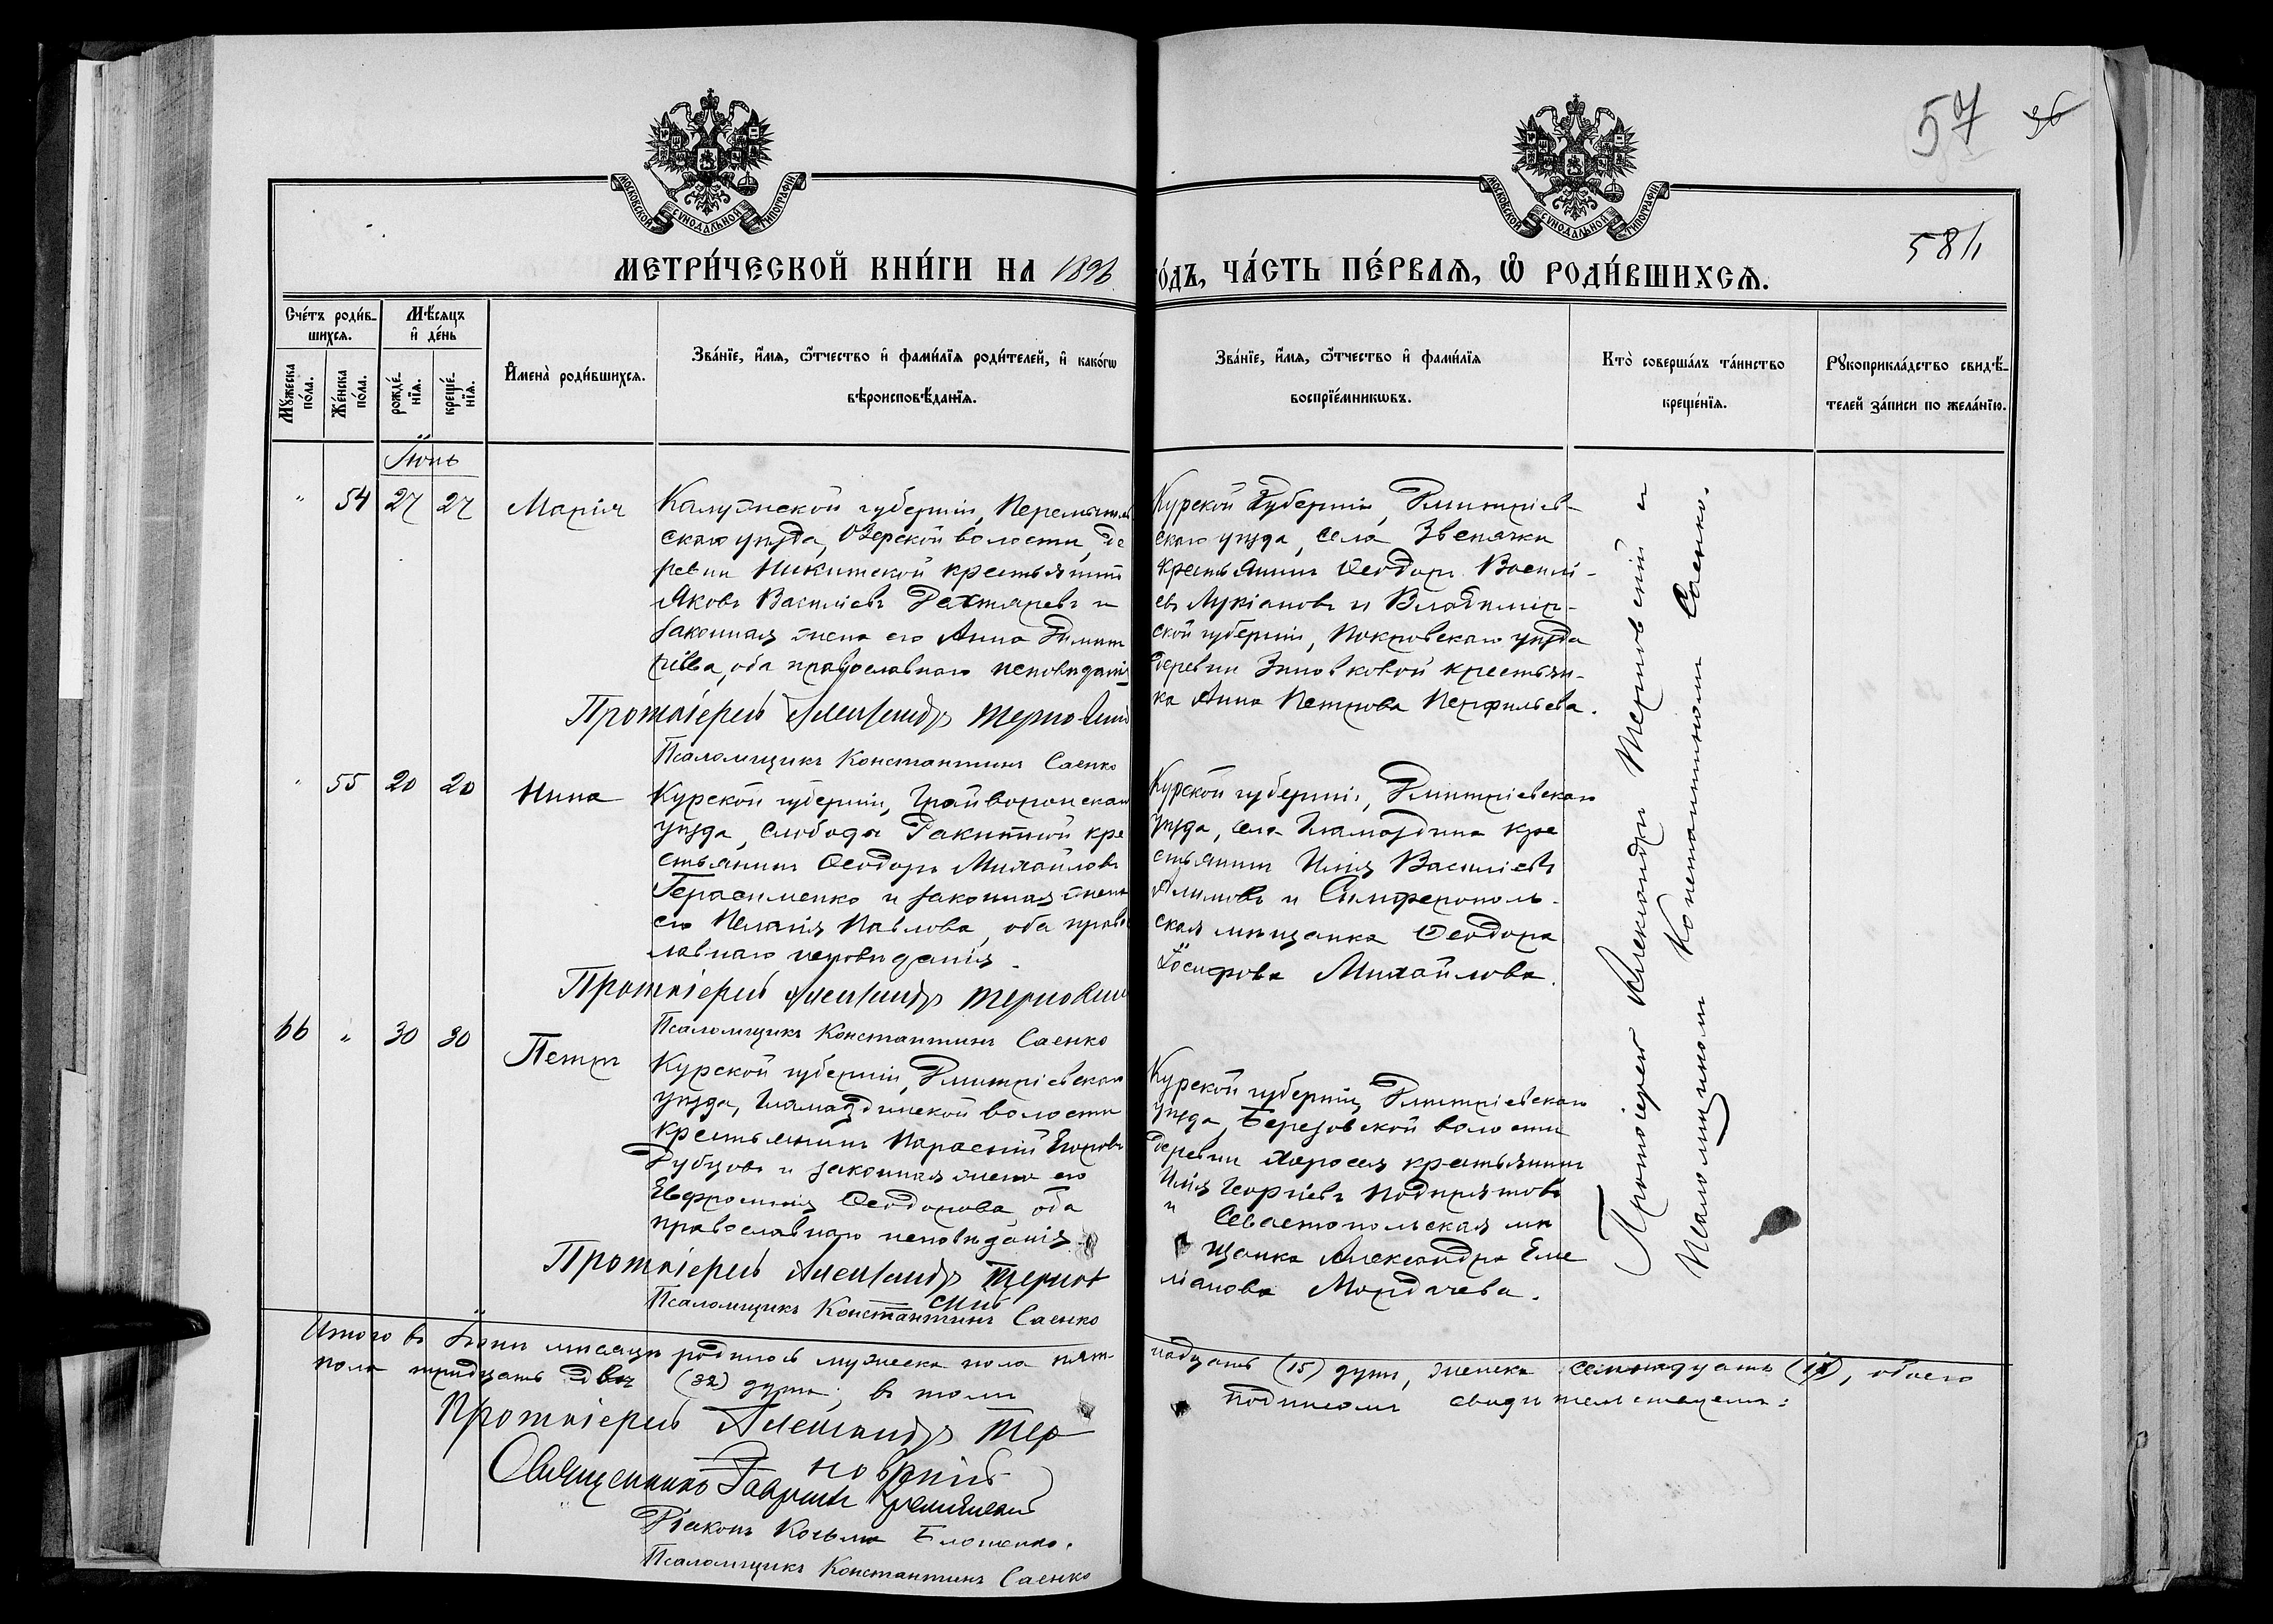 57 36
МОСКОВСКОЙ СУНОДАЛЬНОЙ ТИПОГРАФІИ
МОСКОВСКОЙ СУНОДАЛЬНОЙ ТИПОГРАФІИ
584
МЕТРИ́ЧЕСКОЙ КНИ́ГИ НА 1896
го́дъ, ЧА́СТЬ ПЕ́РВАѦ, Ѡ҆ РОДИ́ВШИХСѦ.
Сче́тъ роди́в-
шихсѧ.
Мѣ́сѧцъ
и҆ де́нь
Мꙋ́жеска по́ла.
Же́нска по́ла.
рожде́-нїѧ.
креще́-нїѧ.
И҆мена̀ роди́вшихсѧ.
Зва́нїе, и҆́мѧ, ѻ҆́тчество и҆ фами́лїѧ роди́телей, и҆ како́гѡ
вѣроисповѣ́данїѧ.
Зва́нїе, и҆́мѧ, ѻ҆́тчество и҆ фами́лїѧ
воспрїе́мникѡвъ.
Кто̀ соверша́лъ та́инство
креще́нїѧ.
Рꙋкоприкла́дство свидѣ́-
телей за́писи по жела́нїю.
Іюнь
" 54 27 27 Марія
Калужской губерніи, Перемышль
скаго уѣзда, Озерской волости, де
ревни Никитской крестьянинъ
Яковъ Василіевъ Дехтяревъ и
законная жена его Анна Димит
ріева, оба православнаго исповѣданія
Протоіерей Александръ Терновскій
Псаломщикъ Константинъ Саенко
Курской Губерніи, Дмитріев-
скаго уѣзда, села Звенячки
крестьянинъ Ѳеодоръ Василі-
евъ Лукіановъ и Владимір-
ской губерніи, Покровскаго уѣзда
деревни Зиновковой крестьян-
ка Анна Петрова Перфильева.
" 55 20 20 Нина
Курской губерніи, Грайворонскаго
уѣзда, слободы Ракитной кре
стьянинъ Ѳеодоръ Михайловъ
Герасименко и законная жена
его Пелагія Павлова, оба право
лавнаго исповѣданія.
Протоіерей Александръ Терновскій
Псаломщикъ Константинъ Саенко
Курской губерніи, Дмитріевскаго
уѣзда, села Гламаздина кре
стьянинъ Илія Василіевъ
Алимовъ и Симферополь-
ская мѣщанка Ѳеодора
Іосифова Михайлова.
66 " 30 30 Петръ
Курской губерніи, Дмитріевскаго
уѣзда, Гламаздинской волости
крестьянинъ Парасній Егоровъ
Рубцовъ и законная жена его
Евфросинія Ѳеодорова, оба
православнаго исповѣданія.
Протоіерей Александръ Тернов
скій
Псаломщикъ Константинъ Саенко
Курской губерніи, Дмитріевскаго
уѣзда, Березовской волости
деревни Хароcея крестьянинъ
Илія Георгіевъ Подпрятовъ
и Севастопольская мѣ
щанка Александра Еме
ліанова Мордачева.
Протоіерей Александръ Терновскій и
Псаломщикомъ Константиномъ Саенко.
Итого въ Іюнѣ мѣсяцѣ родилось мужеска пола пят-
надцать (15) душъ, женска семнадцать (17), обоего
пола тридцать двѣ (32) души; въ томъ
подписомъ свидѣтельствуемъ:
Протоіерей Александръ Тер
новскій
Священникъ Гавріилъ
Діаконъ Косьма Блошенко.
Псаломщикъ Константинъ Саенко